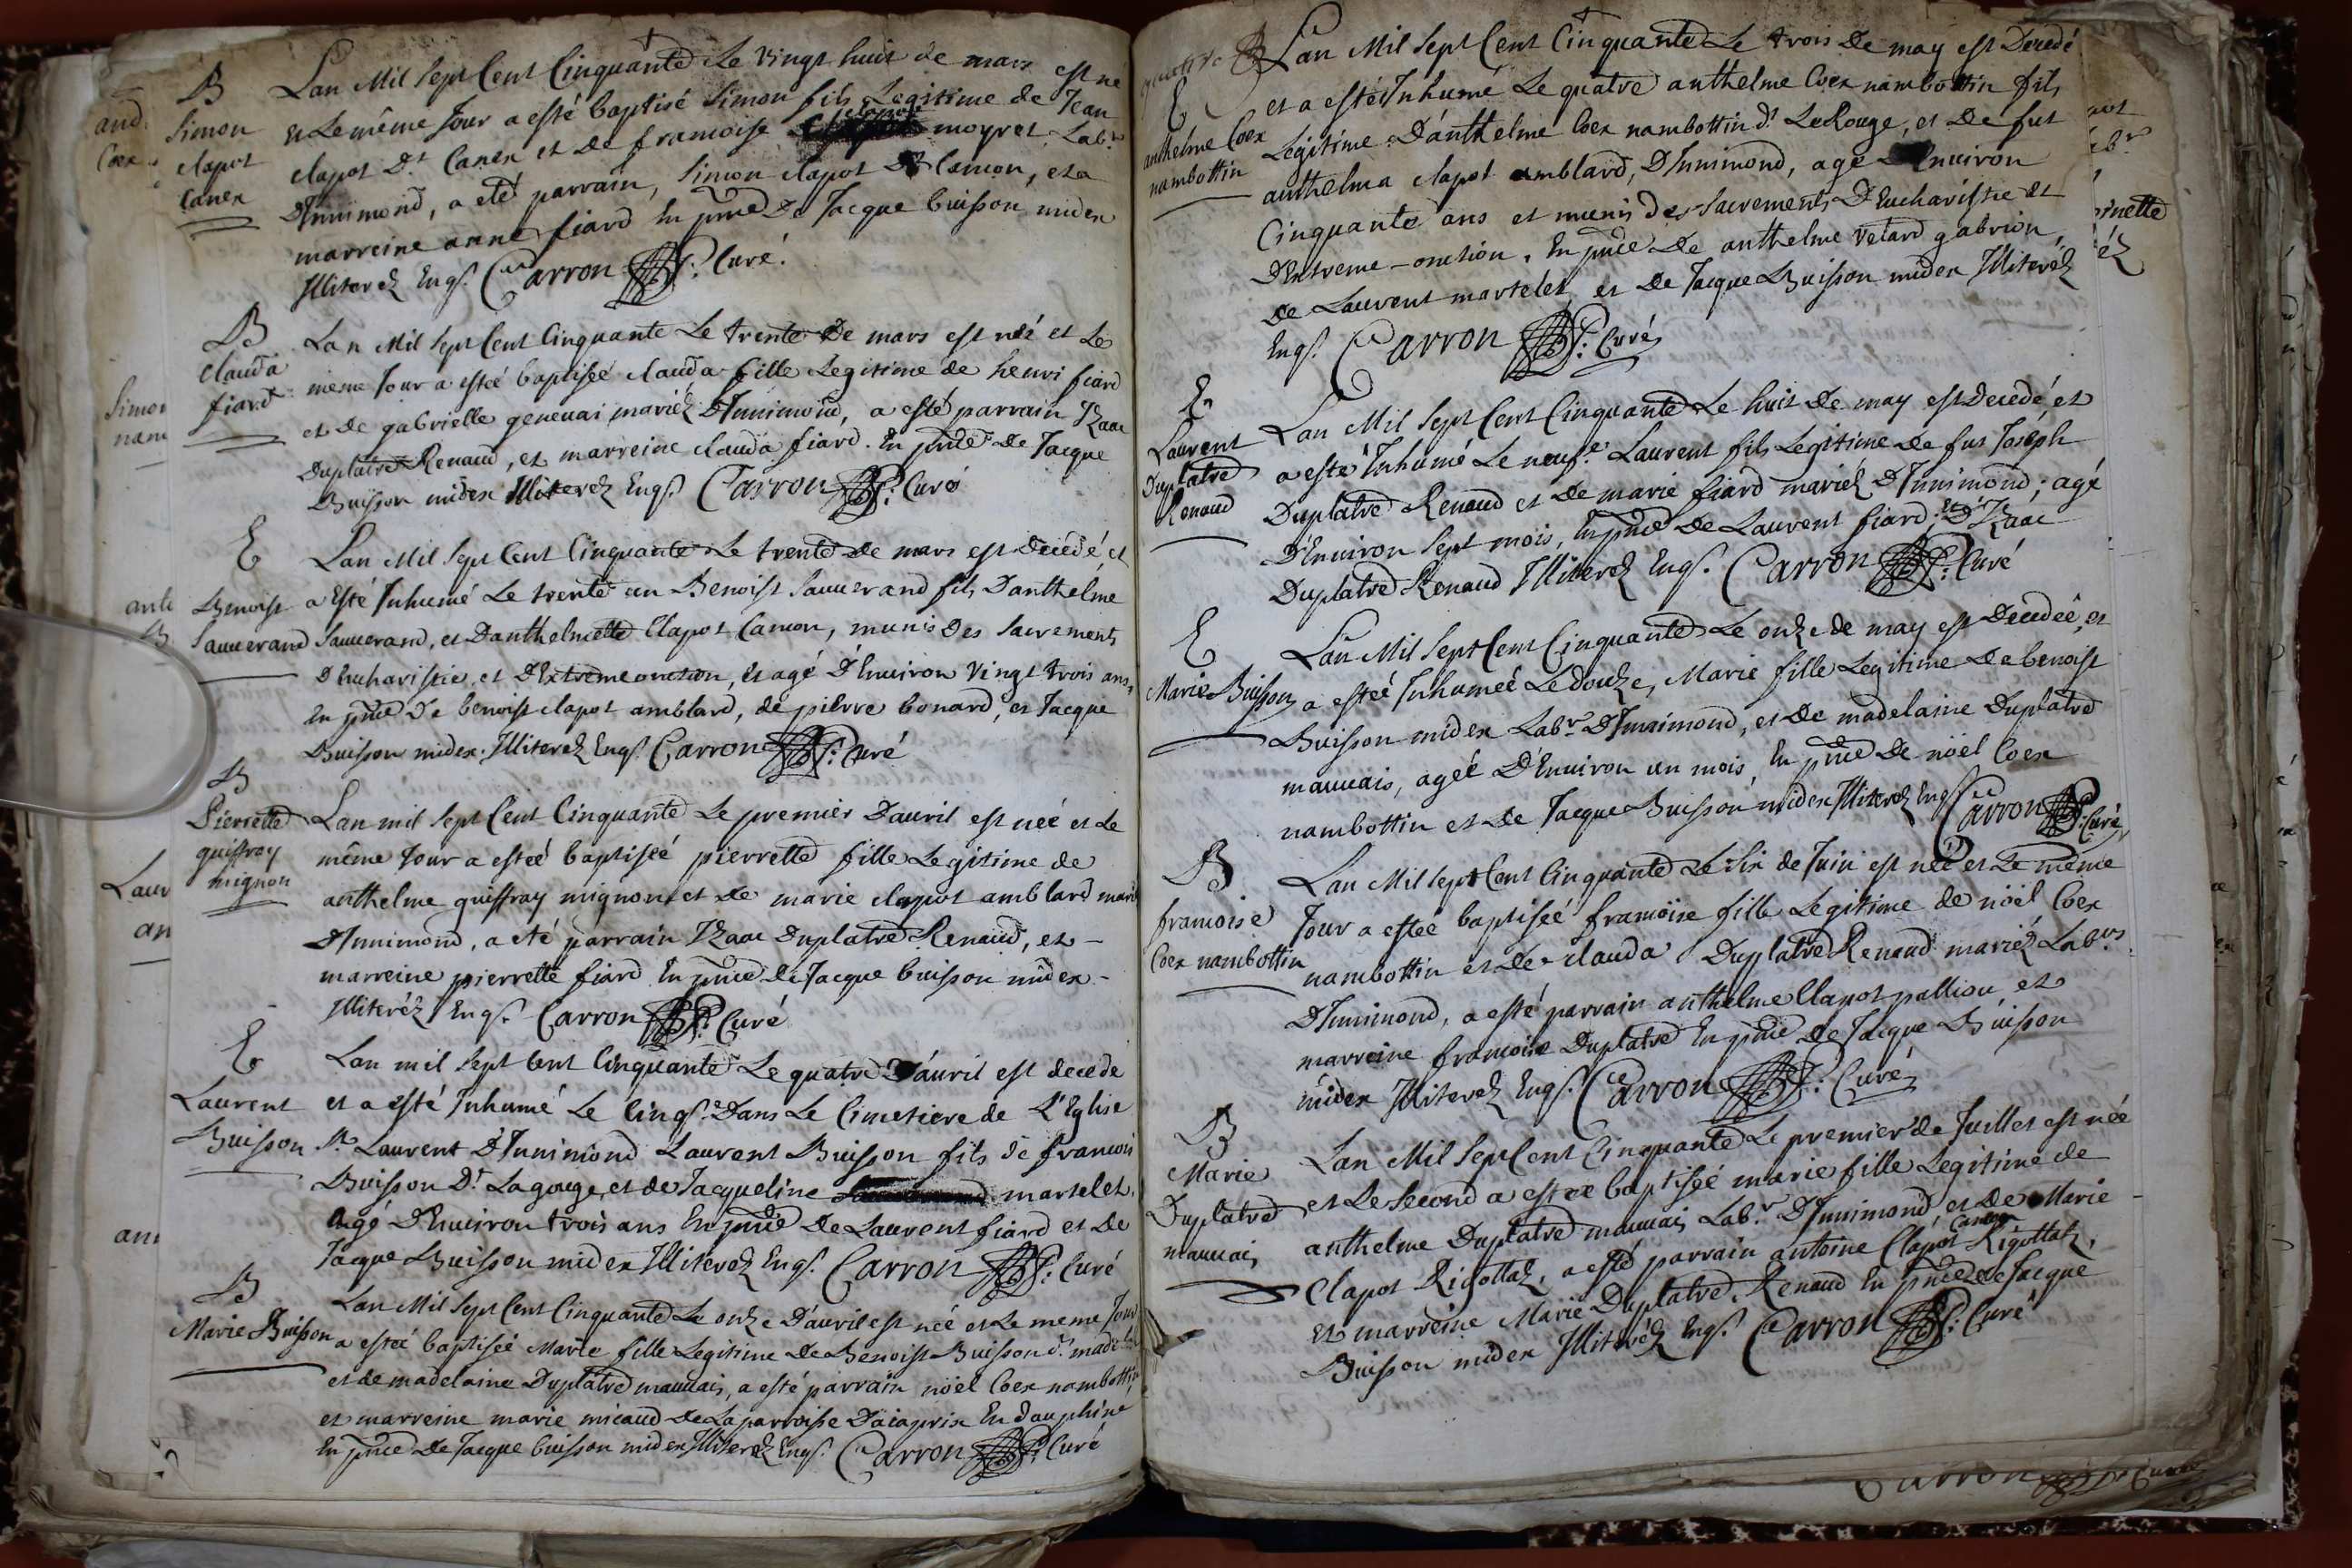 B
Simon
clapot
Canex
Lan Mil Sept Cent Cinquante Le vingt huit de mars est né
et Le même Jour a esté baptisé Simon fils Legitime de Jean
clapot Dt. Canex et de francoise clapot moyret Labrs
D'Innimond, a eté parrain, Simon clapot Camon, et a
marreine anne fiard En pnce De Jacque buisson midex
Illiterez Enqs. Carron P: Curé.
B
clauda
fiard
Lan Mil Sept Cent Cinquante Le trente De mars est née et Le
même Jour a esteé baptiseé clauda fille Legitime de henri fiard
et de gabrielle genevai mariéz D'Innimond, a esté parrain Izaac
Duplatre Renaud, et marreine clauda fiard. En pnce De Jacque
Buisson midex Illiterez Enqs. Carron P: Curé
E
Benoist
Sauverand
Lan Mil Sept Cent Cinquante Le trente de mars est decedé et
a Esté Inhumé Le trente un Benoist Sauverand fils Danthelme
Sauverand, et Danthelmette Clapot Camon, munis Des Sacrements
D'Eucharistie, et D'Extreme onction, et agé D'Environ Vingt trois ans,
En pnce De benoist clapot amblard, de pierre bonard, et Jacque
Buisson midex. Illiterez Enqs. Carron P: Curé
B
Pierrette
guiffray
mignon
Lan mil Sept Cent Cinquante Le premier D'avril est née et Le
même Jour a esteé baptiseé pierrette fille Legitime de
anthelme guiffray mignon et de marie clapot amblard mariéz
D'Innimond, a eté parrain Izaac Duplatre Renaud, et -
marreine pierrette fiard En pnce de Jacque buisson midex -
Illiteréz Enqs. Carron P: Curé
E
Laurent
Buisson
Lan mil Sept Cent Cinquante Le quatre D'avril est decedé
et a esté Inhumé Le Cinqe. Dans Le Cimetiere de L'Eglise
St. Laurent D'Innimond Laurent Buisson fils de francois
Buisson Dt. Lagouge, et de Jacqueline martelet,
Agé D'Environ trois ans En pnce De Laurent fiard et De
Jacque Buisson midex Illiterez Enqs. Carron P: Curé
B
Marie Buisson
Lan Mil Sept Cent Cinquante Le onze D'avril est née et Le meme Jour
a esteé baptiseé Marie fille Legitime De Benoist Buisson
et de madelaine Duplatre mauvais, a esté parrain noël Coex nambottin
et marreine marie micaud de La parroisse Daiaprix En dauphine
En pnce De Jacque buisson midex Illiterez Enqs. Carron P: Curé
E
anthelme Coex
nambottin
Lan Mil Sept Cent Cinquante Le trois De may est Decedé
et a esté Inhumé Le quatre anthelme Coex nambottin fils
Legitime D'anthelme Coex nambottin dt LeRouge, et De fut
anthelma clapot amblard, D'Innimond, agé D'Environ
Cinquante ans et munis des Sacrements D'Eucharistie et
D'Extreme-onction, En pnce De anthelme Vetard gabrion,
de Laurent martelet et De Jacque Buisson midex Illiteréz
Enqs. Carron P: Curé
E
Laurent
Duplatre
Renaud
Lan Mil Sept Cent Cinquante Le huit De may est Decedé, et
a esté Inhumé Le neufe. Laurent fils Legitime de fut Joseph
Duplatre Renaud et de marie fiard mariéz D'Innimond; agé
D'Environ Sept mois, En pnce De Laurent fiard; et D'Izaac
Duplatre Renaud Illiterez Enqs. Carron P: Curé
E
Marie Buisson
Lan Mil Sept Cent Cinquante Le onze de may est Decedeé, et
a esteé Inhumeé Le douze, Marie fille Legitime De benoist
Buisson midex Labr. D'Innimond, et De madelaine Duplatre
mauvais, ageé D'Environ un mois, En pnce De noël Coex
nambottin et de Jacque Buisson midex Illiterez Enqs. Carron P: Curé
B
francoise
Coex nambottin
Lan Mil Sept Cent Cinquante Le Six de Juin est née et Le même
Jour a esteé baptiseé francoise fille Legitime de noël Coex
nambottin et de clauda Duplatre Renaud mariéz Labrs.
D'Innimond, a esté parrain anthelme Clapot pallion et
marreine francoise Duplatre En pnce de Jacque Buisson
midex Illiterez Enqs. Carron P: Curé
B
Marie
Duplatre
mauvais
Lan Mil Sept Cent Cinquante Le premier de Juillet est née
et Le Second a esteé baptiseé marie fille Legitime de
anthelme Duplatre mauvais Labr. D'Innimond et de Marie
Clapot Rigottaz, a esté parrain antoine Clapot Camon Rigottaz,
et marreine Marie Duplatre Renaud En pnce de Jacque
Buisson midex Illiteréz Enqs. Carron P: Curé
Carron P: Curé